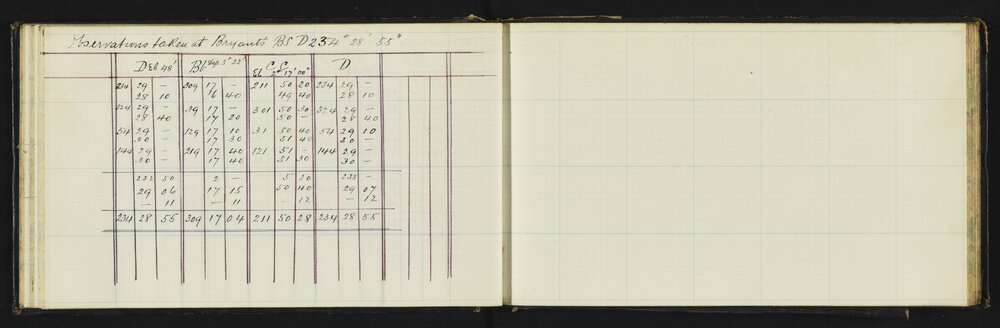 Observations taken at Bryants BS D 234° 28' 55"
D Eb 48' Bb dep 3° 22' CC Eb 2° 17' 00" D
214 29 — 309 17 — 211 50 20 234 29 —
28 10 16 40 49 40 28 10
324 29 — 39 17 — 301 50 30 324 29 —
28 40 17 20 50 — 28 40
54 29 — 129 17 10 31 50 40 54 29 10
30 — 17 30 51 40 30 —
144 29 — 219 17 40 121 51 — 144 29 —
30 — 17 40 51 30 30 —
232 50 2 — 5 20 233 —
29 06 17 15 50 40 29 07
— 11 — 11 - 12 — 12
234 28 55 309 17 04 211 50 28 234 28 55